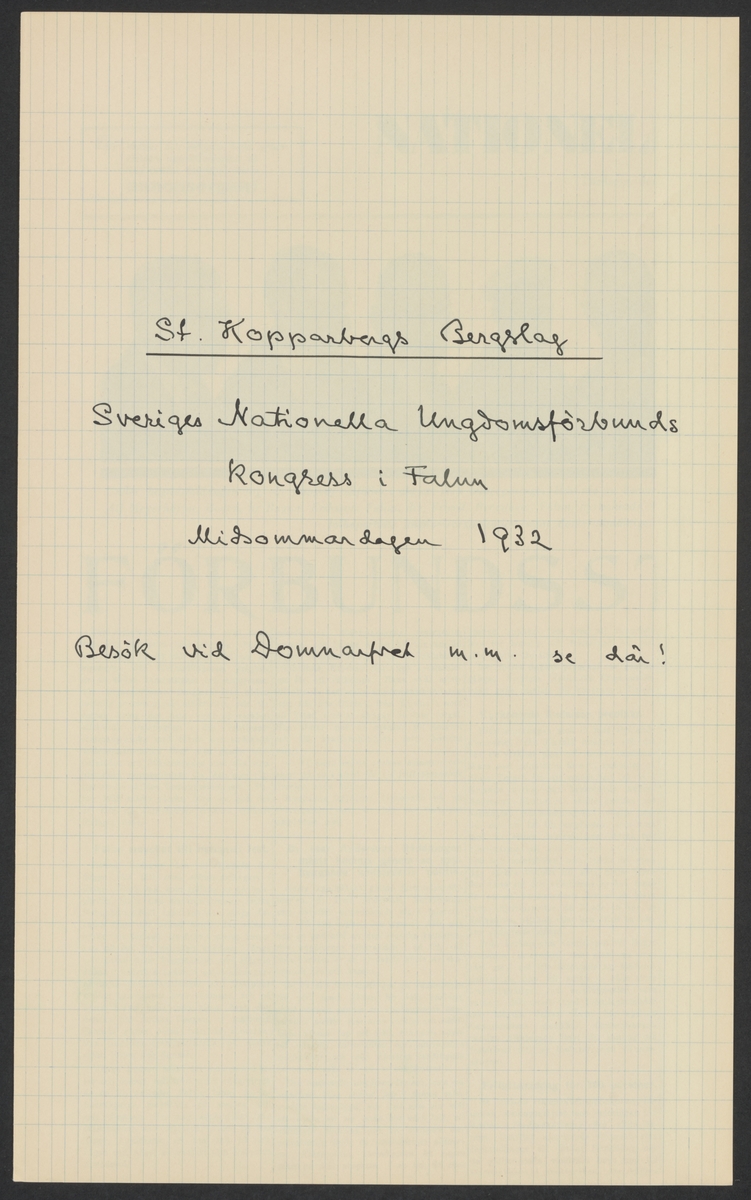 St. Kopparbergs Bergslag
Sveriges Nationella Ungdomsförbunds
kongress i Falun
Midsommardagen 1932
Besök vid Domnarfvet m.m. se där!